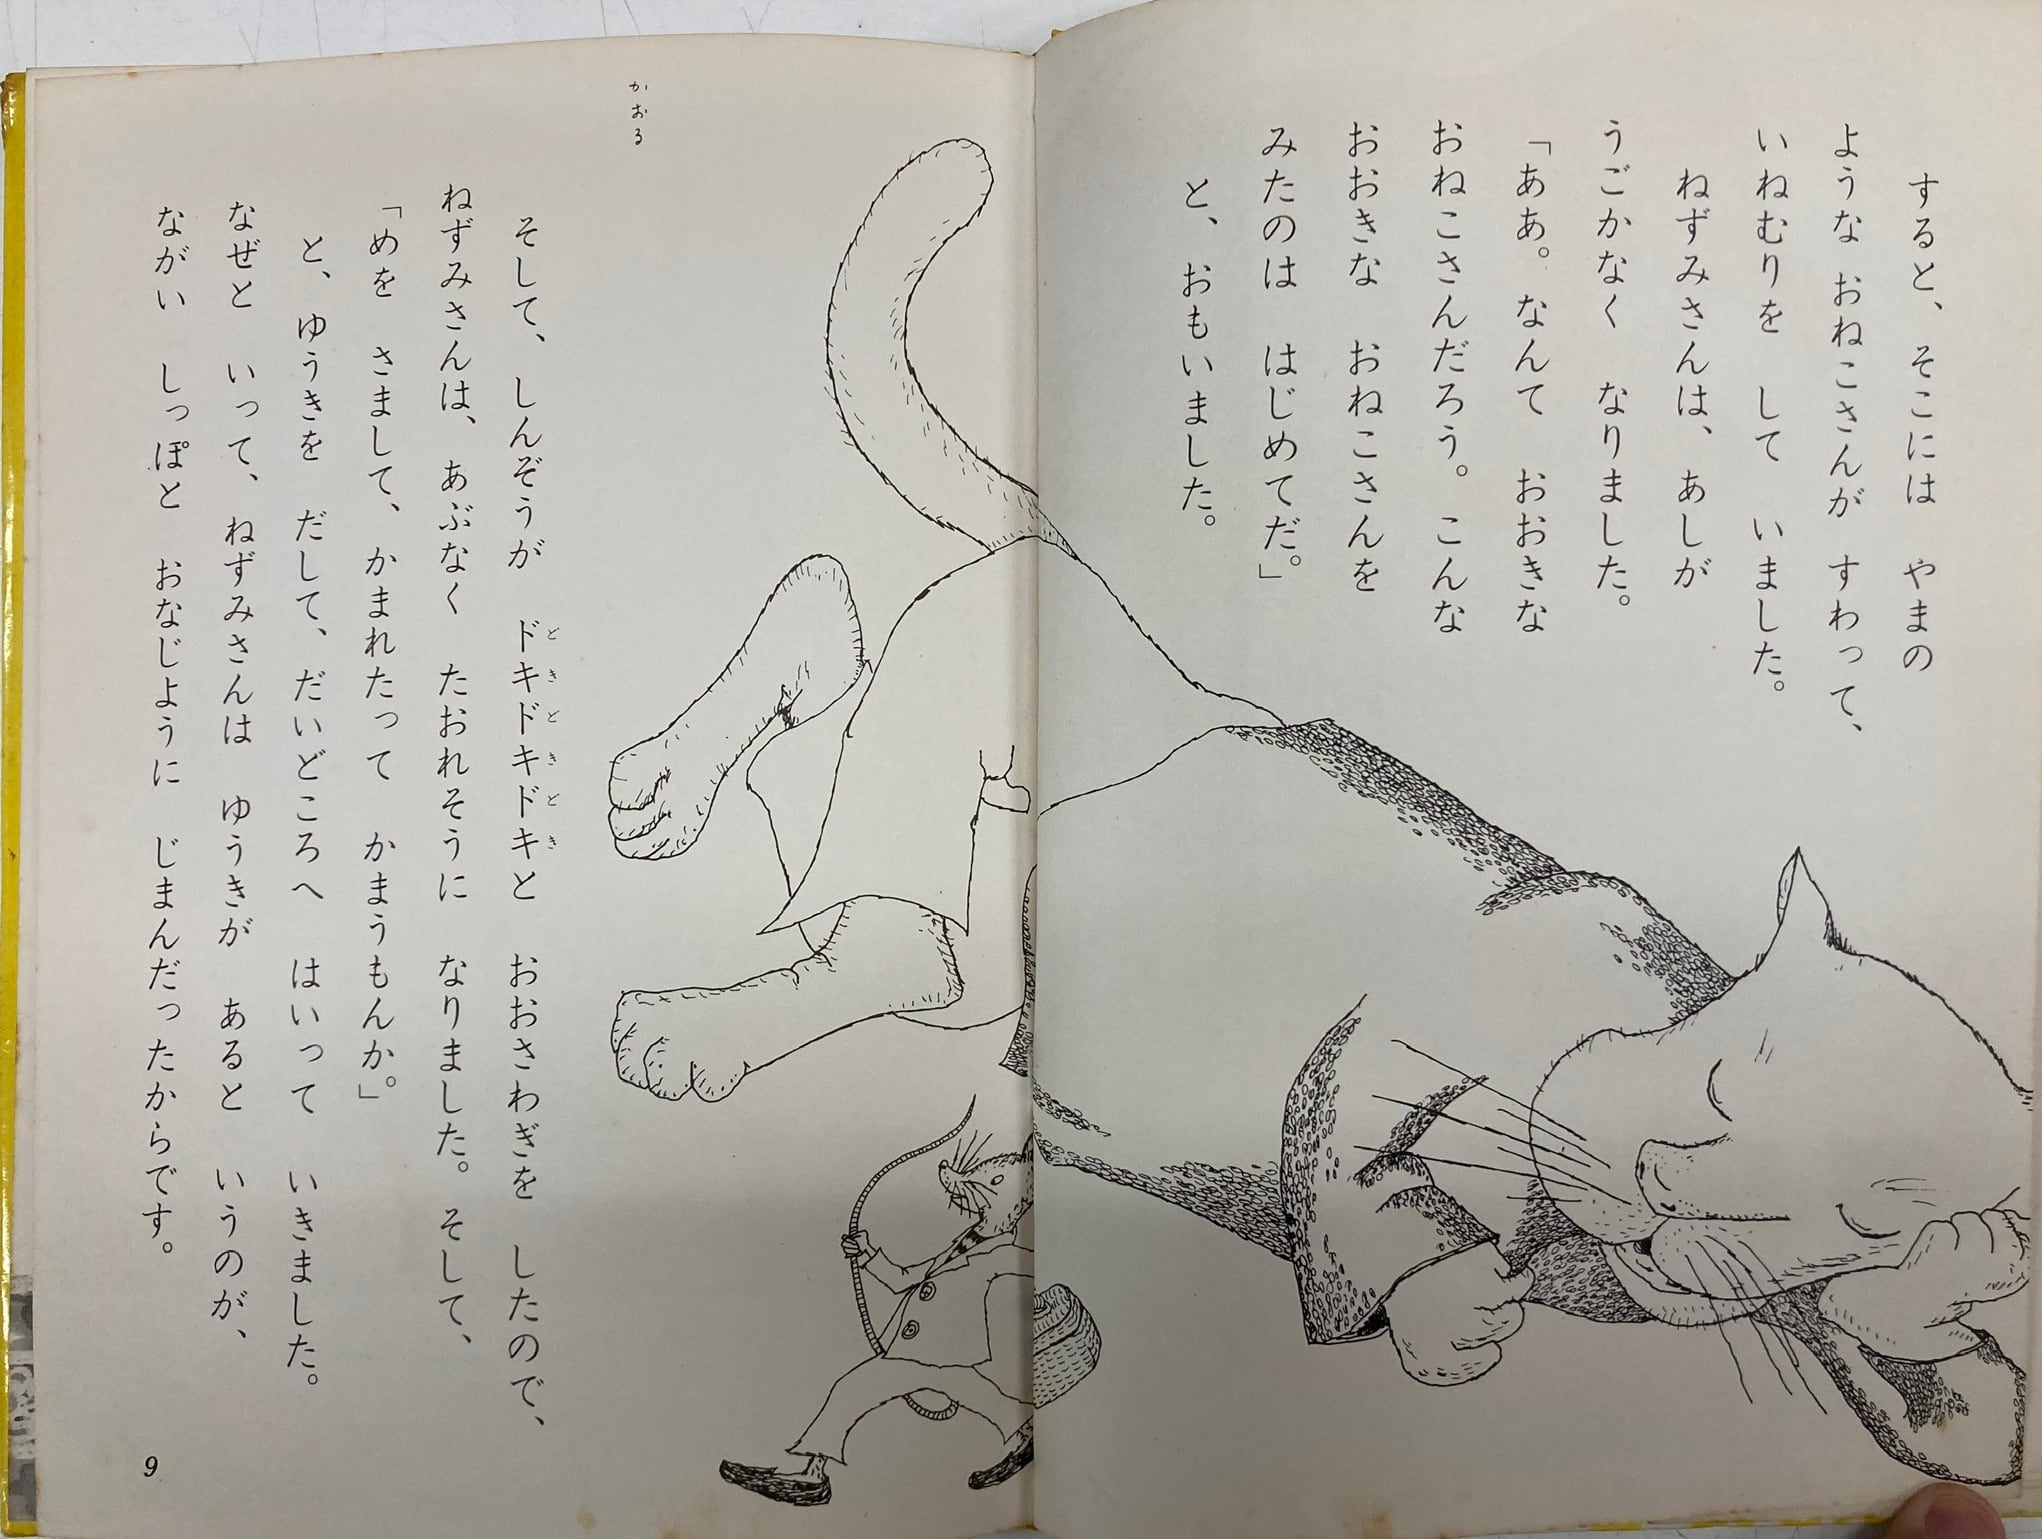 すると、そこには やまの
ような おねこさんが すわって、
いねむりを して いました。
ねずみさんは、あしが
うごかなく なりました。
「ああ。なんて おおきな
おねこさんだろう。こんな
おおきな おねこさんを
みたのは はじめてだ。」
と、おもいました。
かおる
そして、しんぞうが ドキドキドキと おおさわぎを したので、
どきどきどき
ねずみさんは、あぶなく たおれそうに なりました。そして、
「めを さまして、かまれたって かまうもんか。」
と、ゆうきを だして、だいどころへ はいって いきました。
なぜと いって、ねずみさんは ゆうきが あると いうのが、
ながい しっぽと おなじように じまんだったからです。
9